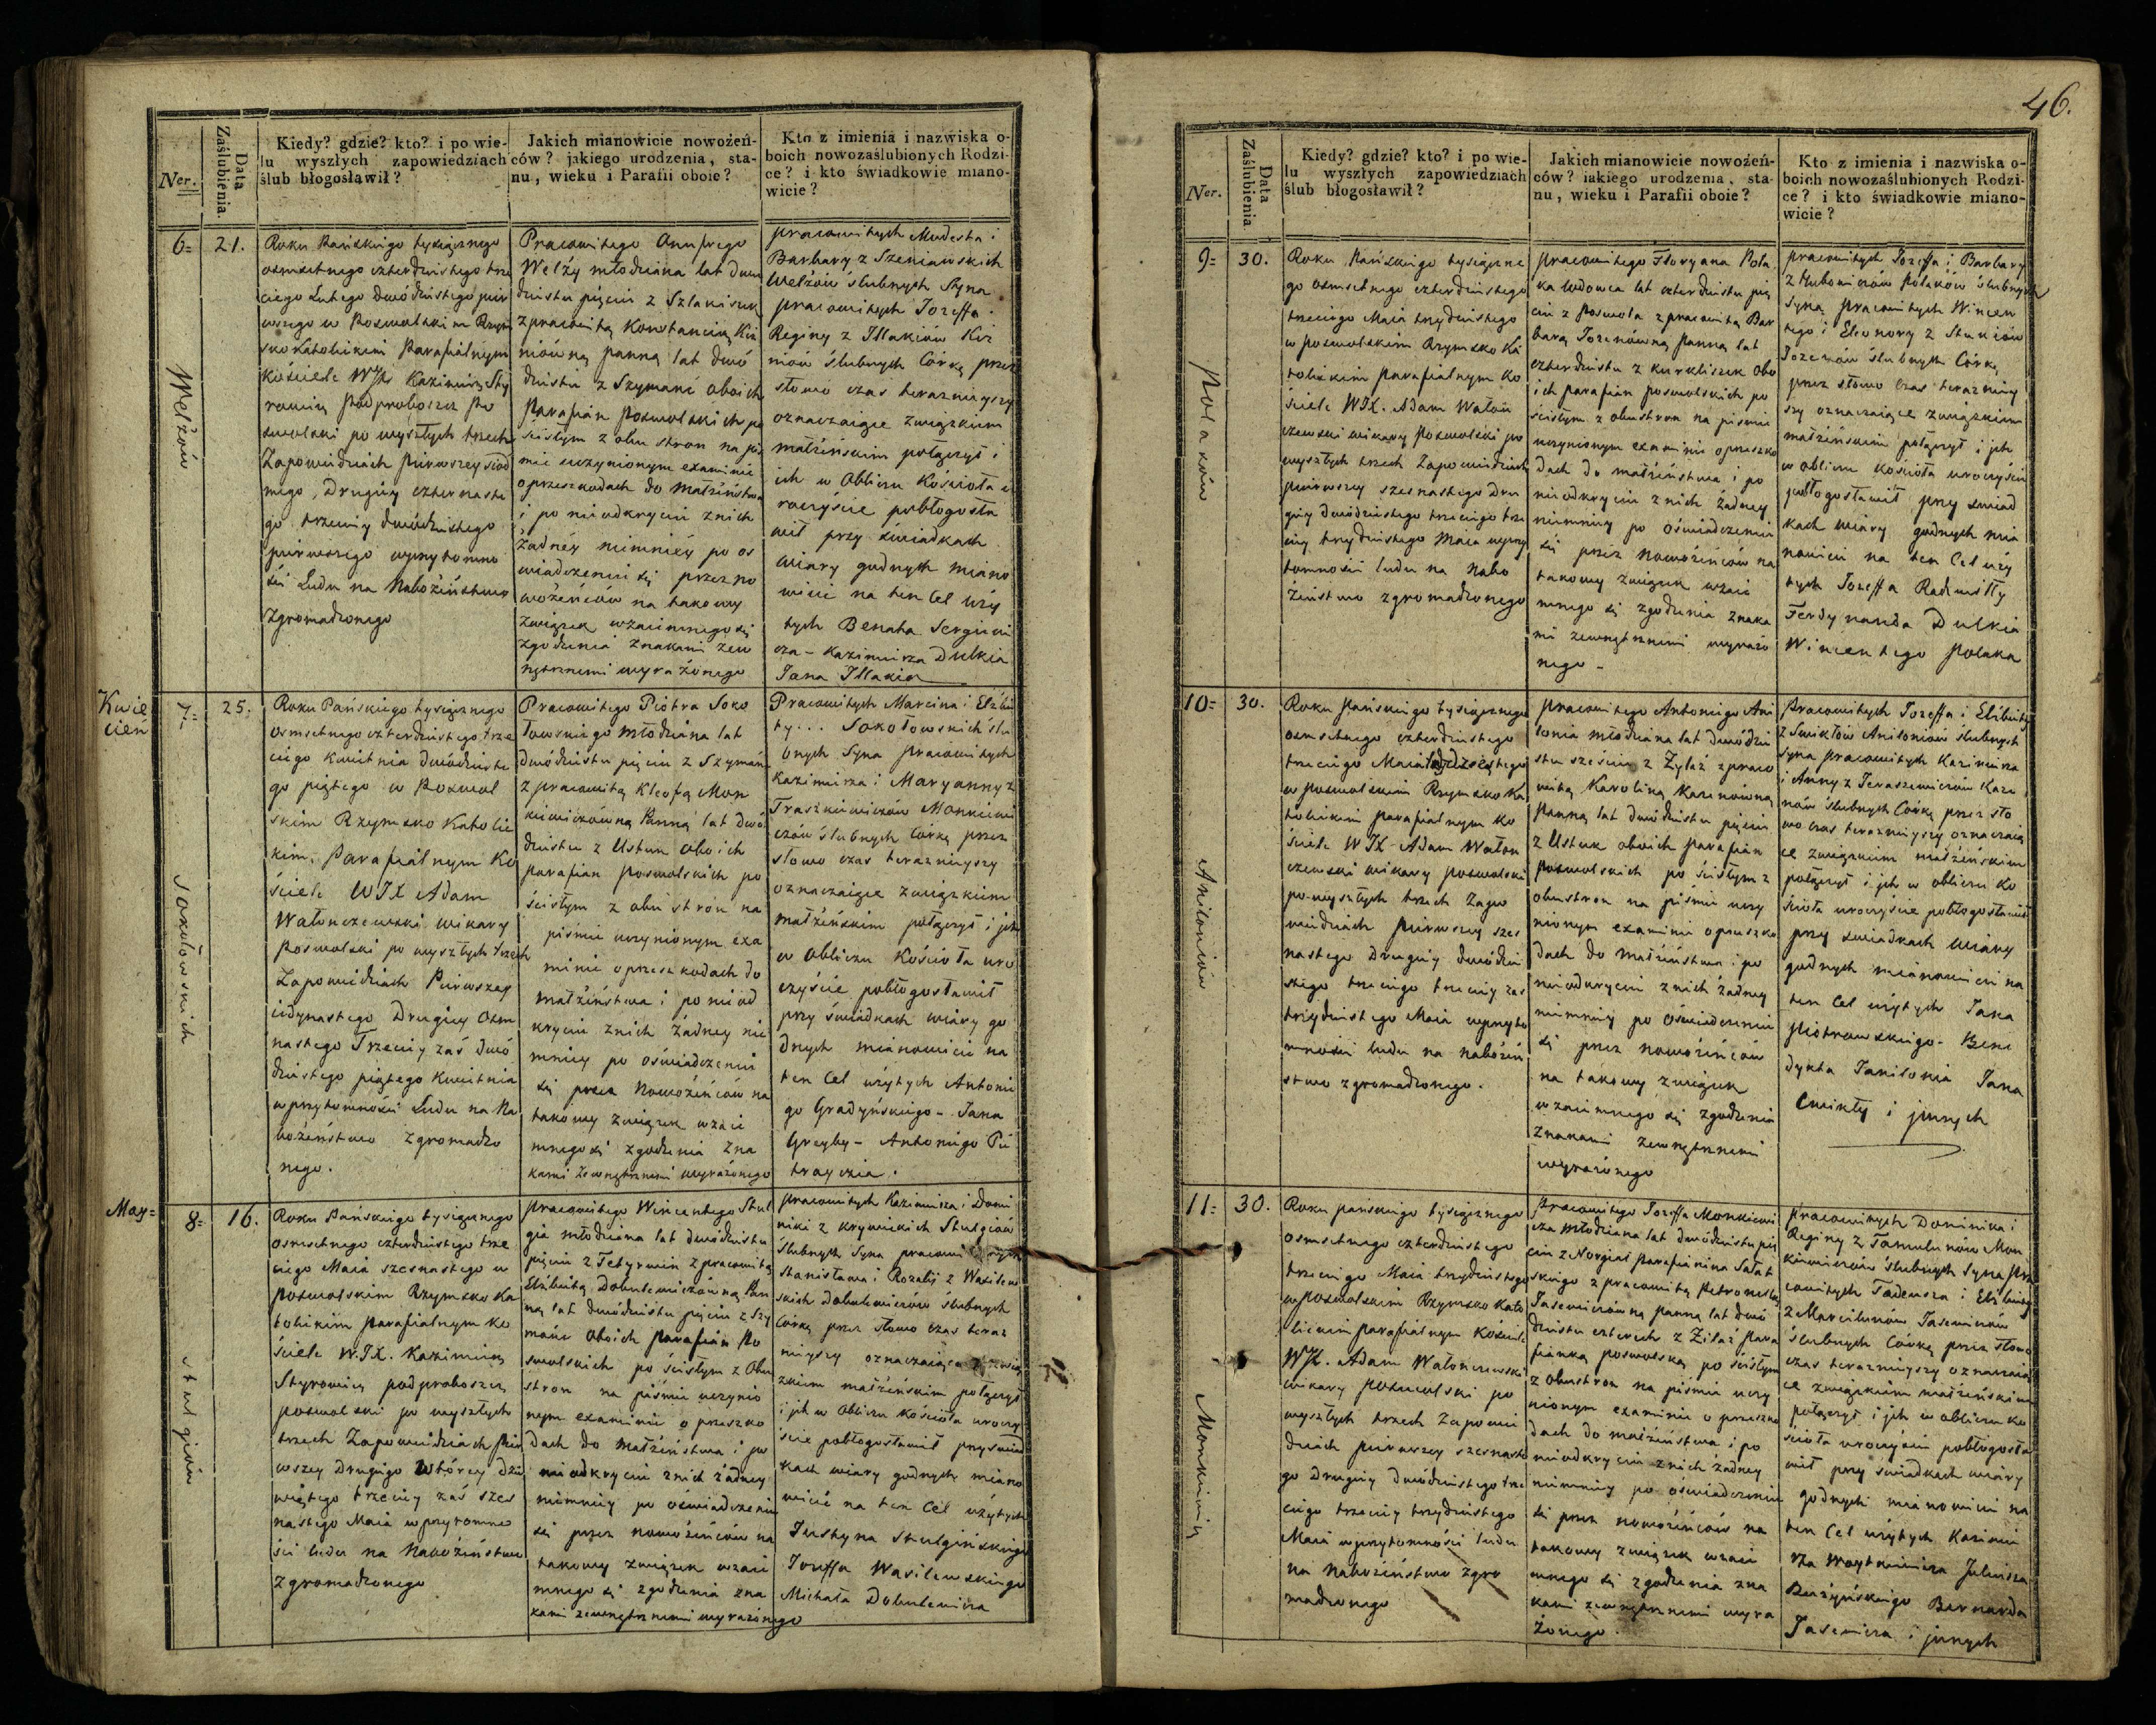 Ner.
Data Zaślubienia.
Kiedy? gdzie? kto? i po wie-
lu wyszłych zapowiedziach
ślub błogosławił?
Jakich mianowicie nowożeń-
ców? jakiego urodzenia, sta-
nu, wieku i Parafii oboie?
Kto z imienia i nazwiska o-
boich nowozaślubionych Rodzi-
ce? i kto świadkowie miano-
wicie?
6=
Welżów
21.
Roku Pańskiego tysiącznego
osmsetnego czterdziestego trze
ciego Lutego dwódziestego pier
wszego w Poswolskim Rzym
sko Katolickim Parafialnym
kościele WJX Kazimierz Sty
rowicz Podproboszcz Po
swolski po wyszłych trzech
Zapowiedziach pierwszey siod
mego, Drugiey czternaste
go trzeciey dwódziestego
pierwszego w przytomno
ści Ludu na Nabożeństwo
Zgromadzonego
Pracowitego Onufrego
Welży młodziana lat dwu
dziestu pięciu z Szlaniszek
z pracowitą Konstancią Kis
niówną panną lat dwó
dziestu z Szymanc oboich
Parafian Poswolskich po
ścisłym z obu stron na piś
mie uczynionym examinie
o przeszkodach do Małżeństwa
i po nieodkryciu z nich
żadnéy niemniéy po os
wiadczeniu się przez no
wożeńców na takowy
związek wzaiemnego się
zgodzenia znakami zew
nętrznemi wyrażonego
pracowitych Modesta i
Barbary z Szeniawskich
Welżów ślubnych Syna
pracowitych Jozeffa i
Reginy z Illakiów Kis
niów ślubnych Córkę przez
słowo czas teraznieyszy
oznaczaiące związkiem
małżeńskim połączył i
ich w Obliczu Kościoła u
roczyście pobłogosła
wił przy świadkach
wiary godnych miano
wicie na ten Cel uży
tych Benata Sergiewi
cza - Kazimierza Dulkia
Jana Illakia
Kwie
cień
7=
Sokołowskich
25.
Roku Pańskiego tysiącznego
osmsetnego czterdziestego trze
ciego Kwietnia dwódzieste
go piątego w Poswol
skim Rzymsko Katolic
kim Parafialnym Ko
ściele WJX Adam
Wałonczewski wikary
Poswolski po wyszłych trzech
Zapowiedziach Pierwszey
iedynastego Drugiey Osm
nastego Trzeciey zaś dwó
dziestego piątego Kwietnia
w przytomności Ludu na Na
bożeństwo zgromadzo
nego.
Pracowitego Piotra Soko
łowskiego młodziana lat
dwódziestu pięciu z Szymanc
z pracowitą Kleofą Mon
kiewiczówną Panną lat dwó
dziestu z Ustuk oboich
parafian poswolskich po
ścisłym z obu strón na
piśmie uczynionym exa
minie o przeszkodach do
małżeństwa i po nieod
kryciu z nich żadney nie
mniey po oświadczeniu
się przez Nowożeńców na
takowy związek wzaie
mnego się zgodzenia Zna
kami Zewnętrznemi wyrażonego
Pracowitych Marcina i Elżbie
ty... Sokołowskich ślu
bnych Syna pracowitych
Kazimierza i Maryanny z
Traszkiewiczów Monkiewi
czów ślubnych Córkę przez
słowo czas teraznieyszy
oznaczaiące związkiem
małżeńskim połączył i jch
w obliczu Kościoła uro
czyście pobłogosławił
przy świadkach wiary go
dnych mianowicie na
ten Cel użytych Antonie
go Gradyńskiego - Jana
Greyby - Antoniego Pie
trayczia.
May=
8=
Stulgiów
16.
Roku Pańskiego tysiącznego
osmsetnego czterdziestego trze
ciego Maia szesnastego w
poswolskim Rzymsko Ka
tolickim parafialnym Ko
ściele W.J.X. Kazimierz
Styrowicz podproboszcz
poswolski po wyszłych
trzech Zapowiedziach pier
wszey Drugiego wtórey dzie
wiątego trzeciey zaś szes
nastego Maia w przytomno
ści ludu na Nabożeństwo
Zgromadzonego
pracowitego Wincentego Stul
gia młodziana lat dwódziestu
pięciu z Tetyrwin z pracowitą
Elżbietą Dobulewiczówną Pan
ną lat dwódziestu pięciu z Szy
manc oboich parafian Po
swolskich po ścisłym z Obu
stron na piśmie uczynio
nym examinie o przeszko
dach do małżeństwa i po
nieodkryciu z nich żadney
niemniey po oświadczeniu
się przez nowożeńców na
takowy związek wzaie
mnego się zgodzenia zna
kami zewnętrznemi wyrażonego
pracowitych Kazimierza i Domi
niki z Krywickich Stulgiów
Ślubnych Syna pracowitych
Stanisława i Rozalij z Wasilew
skich Dobulewiczów ślubnych
Córkę przez słowo czas teraz
nieyszy oznaczaiące zwią
zkiem małżeńskim połączył
i jch w Obliczu Kościoła urocz
ście pobłogosławił przy świad
kach wiary godnych miano
wicie na ten Cel użytych
Justyna Stulgińskiego
Jozeffa Wasilewskiego
Michała Dobulewicza
46.
Ner.
Data Zaślubienia
Kiedy? gdzie? kto? i po wie-
lu wyszłych zapowiedziach
ślub błogosławił?
Jakich mianowicie nowożeń-
ców? iakiego urodzenia, sta-
nu, wieku i Parafii oboie?
Kto z imienia i nazwiska o-
boich nowozaślubionych Rodzi-
ce? i kto świadkowie miano-
wicie?
9=
Polaków
30.
Roku Pańskiego tysiączne
go osmsetnego czterdziestego
trzeciego Maia trzydziestego
w poswolskim Rzymsko Ka
tolickim parafialnym Ko
ściele WJX. Adam Wałon
czewski wikary poswolski po
wyszłych trzech Zapowiedziach
pierwszey szesnastego Dru
giey dwódziestego trzeciego trze
ciey trzydziestego Maia w przy
tomności ludu na Nabo
żeństwo zgromadzonego
pracowitego Floryana Pola
ka wdowca lat czterdziestu pię
ciu z Poswola z pracowitą Bar
barą Jozenówną panną lat
czterdziestu z Kurkliszek obo
ich parafian poswolskich po
ścisłym z obu stron na piśmie
uczynionym examinie o przeszko
dach do małżeństwa i po
nieodkryciu z nich żadney
niemniey po oświadczeniu
się przez Nowożeńców na
takowy związek wzaie
mnego się zgodzenia znaka
mi zewnętrznemi wyrażo
nego -
pracowitych Jozeffa i Barbary
z Hubowiczów Polaków ślubnych
syna pracowitych Wincen
tego i Eleonory z Stukiów
Jozenów ślubnych Córkę
przez słowo czas terazniey
szy oznaczaiące związkiem
małżeńskim połączył i jch
w obliczu kościoła uroczyście
pobłogosławił przy świad
kach wiary godnych mia
nowicie na ten Cel uży
tych Jozeffa Radwiłły
Ferdynanda Dulkia
Wincentego Polaka
10=
Aniloniów
30.
Roku pańskiego tysiącznego
osmsetnego czterdziestego
trzeciego Maia trzydziestego
w poswolskim Rzymsko Ka
tolickim parafialnym Ko
ściele WJX Adam Wałon
czewski wikary poswolski
po wyszłych trzech Zapo
wiedziach pierwszey szes
nastego Drugiey dwódzie
stego trzeciego trzeciey zaś
trzydziestego Maia w przyto
mności ludu na nabożeń
stwo zgromadzonego.
pracowitego Antoniego Ani
lonia młodziana lat dwódzie
stu sześciu z Żylaż z praco
witą Karoliną Karenówną
panną lat dwódziestu pięciu
z Ustuk oboich parafian
poswolskich po ścisłym z
obu stron na piśmie uczy
nionym examinie o przeszko
dach do małżeństwa i po
nieodkryciu z nich żadney
niemniey po Oświadczeniu
się przez nowożeńców
na takowy związek
wzaiemnego się zgodzenia
Znakami zewnętrznemi
wyrażonego
Pracowitych Jozeffa i Elżbiety
z Ćwikłów Aniloniów ślubnych
syna pracowitych Kazimierza
i Anny z Jeraszewiczów Kare
nów ślubnych Córkę przez sło
wo czas teraznieyszy oznaczaią
ce związkiem małżeńskim
połączył i jch w obliczu Ko
ścioła uroczyście pobłogosławił
przy świadkach wiary
godnych mianowicie na
ten Cel użytych Jana
Piotrowskiego - Bene
dykta Janilonia Jana
Cwikły i jnnych
11=
Monkiewicz
30.
Roku pańskiego tysiącznego
osmsetnego czterdziestego
trzeciego Maia trzydziestego
w poswolskim Rzymsko Kato
lickim parafialnym Kościele
WJX. Adam Wałonczewski
wikary poswolski po
wyszłych trzech Zapowie
dziach pierwszey szesnaste
go Drugiey dwódziestego trze
ciego trzeciey trzydziestego
Maia w przytomności ludu
na Nabożeństwo zgro
madzonego
Pracowitego Jozeffa Monkiewi
cza młodziana lat dwódziestu pię
ciu z Norgiał parafianina Sałat
skiego z pracowitą Petronellą
Jasewiczówną panną lat dwó
dziestu czterech z Żilaż para
fianką poswolską po ścisłym
z obu stron na piśmie uczy
nionym examinie o przeszko
dach do małżeństwa i po
nieodkryciu z nich żadney
niemniey po oświadczeniu
się przez nowożeńców na
takowy związek wzaie
mnego się zgodzenia zna
kami zewnętrznemi wyra
żonego.
pracowitych Dominika i
Reginy z Tamulunów Mon
kiewiczów ślubnych syna pra
cowitych Tadeusza i Elżbiety
z Marcilunów Jasewiczów
ślubnych Córkę przez słowo
czas teraznieyszy oznaczaią
ce związkiem małżeńskim
połączył i jch w obliczu ko
ścioła uroczyście pobłogosła
wił przy świadkach wiary
godnych mianowicie na
ten Cel użytych Kazimie
rza Woytkiewicza Juliusza
Burzyńskiego Bernarda
Jasewicza i jnnych